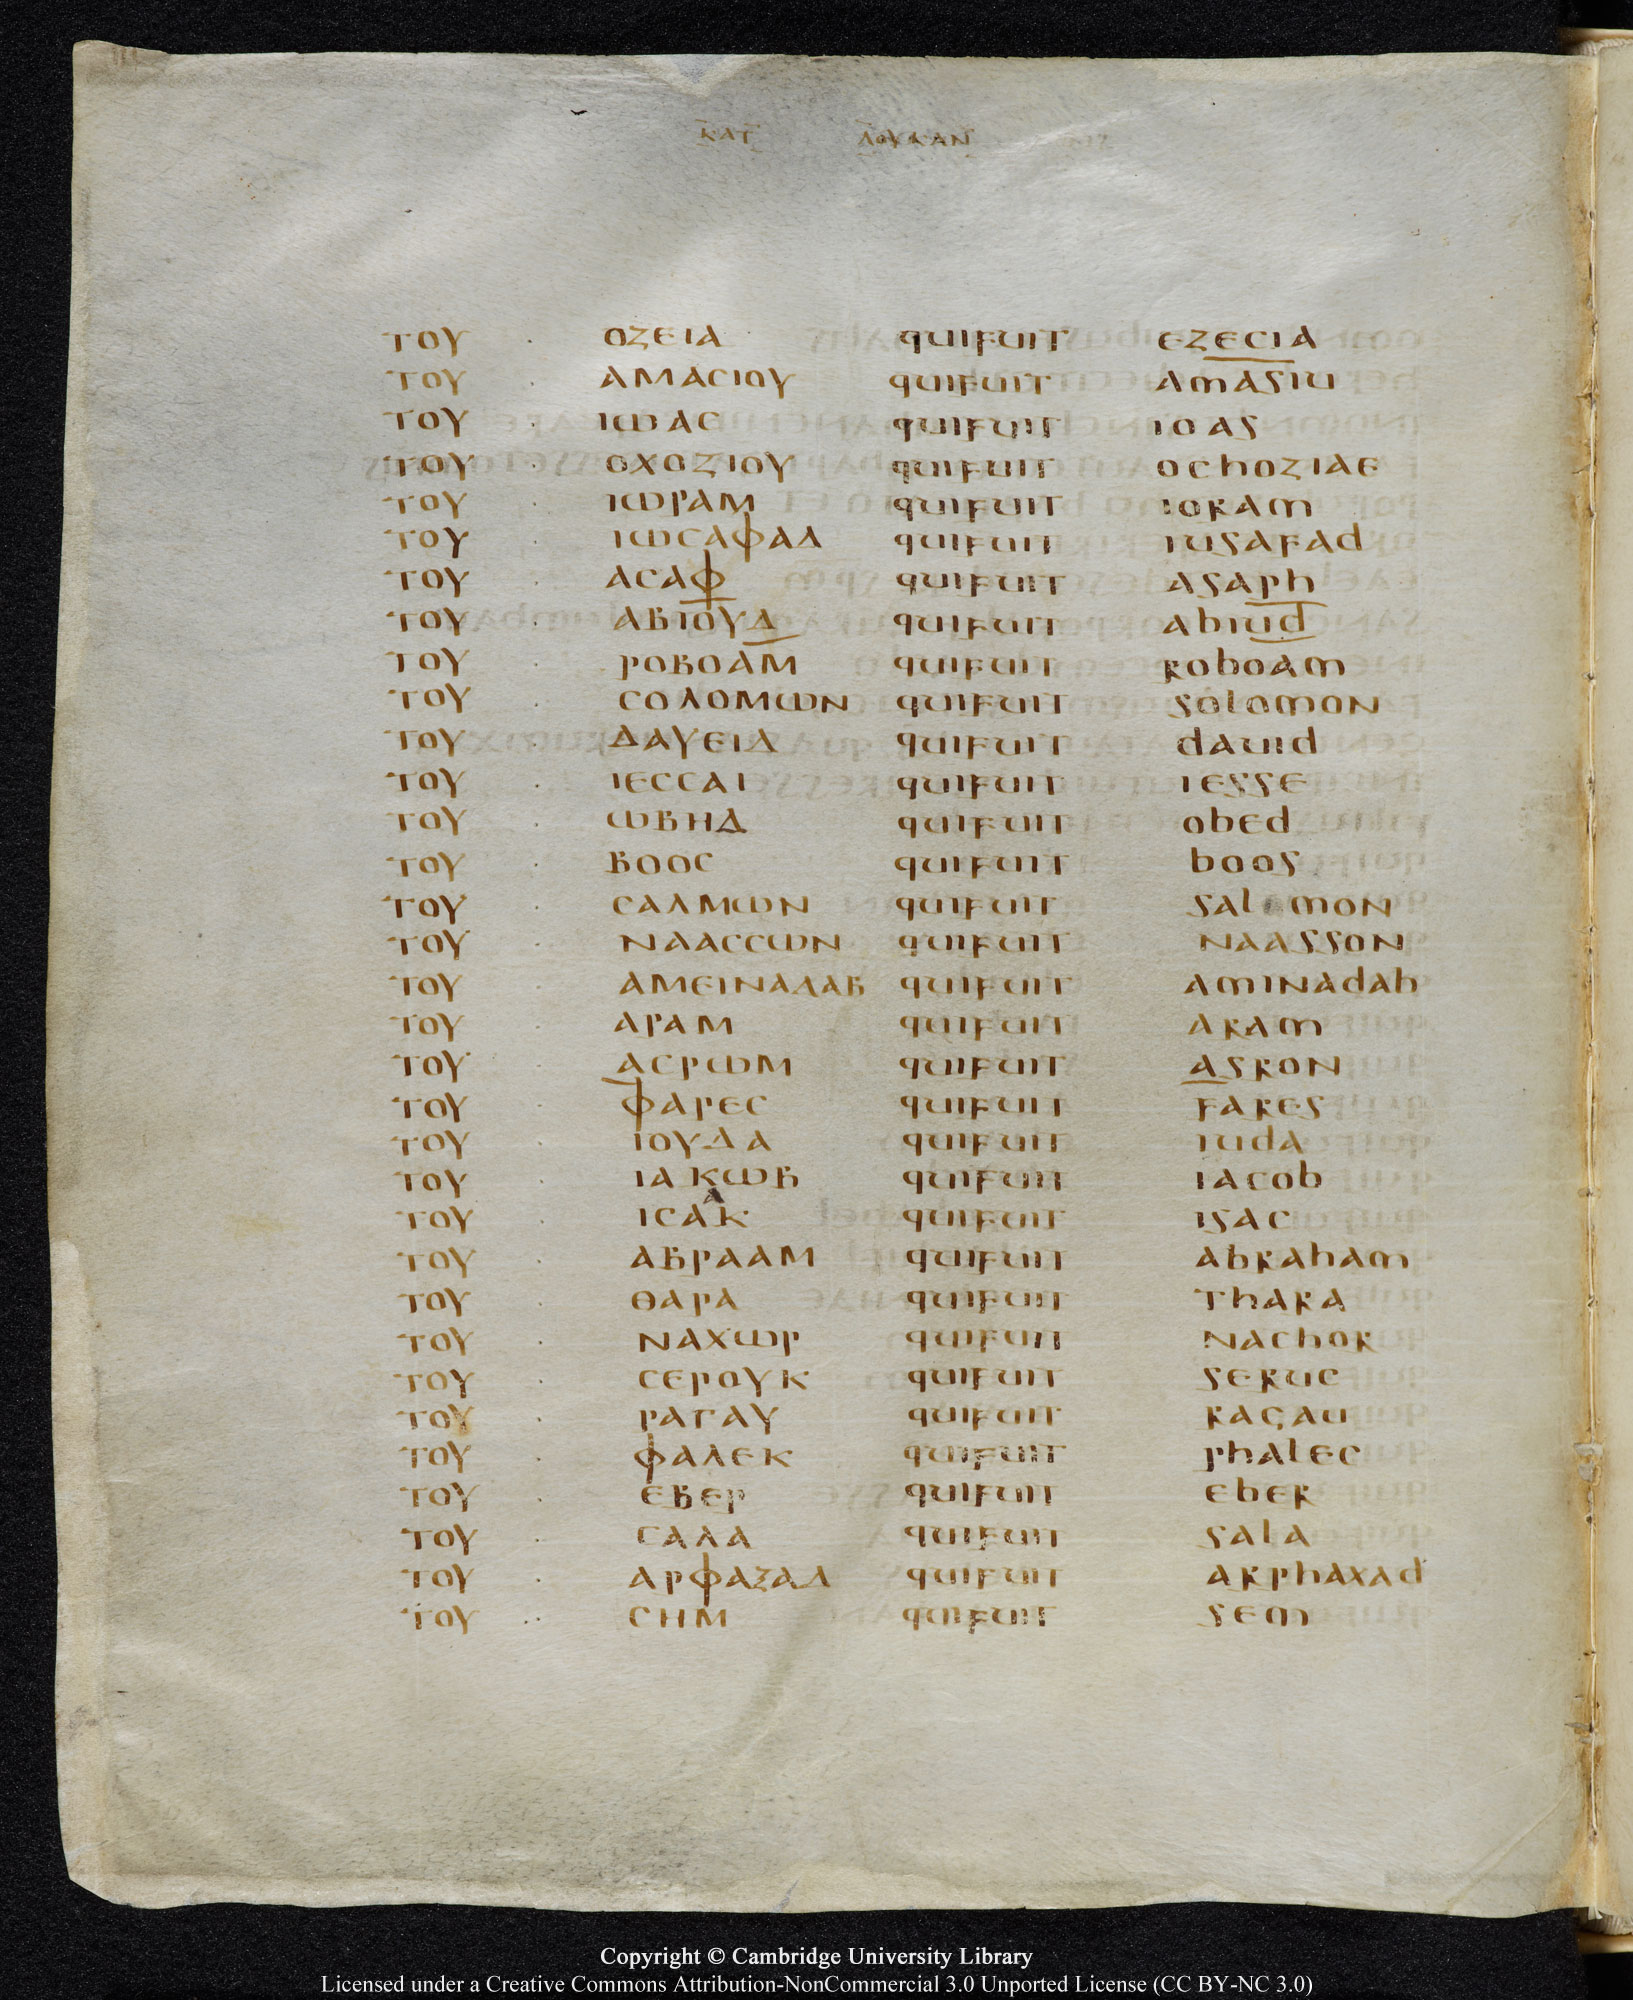 ΚΑΤ ΛΟΥΚΑΝ
ΤΟΥ · ΟΖΕΙΑ quifuit EZECIA
ΤΟΥ · ΑΜΑCΙΟΥ quifuit AMASIU
ΤΟΥ · ΙΩΑC quifuit IOAS
ΤΟΥ · ΟΧΟΖΙΟΥ quifuit OCHOZIAE
ΤΟΥ · ΙΩΡΑΜ quifuit IORAM
ΤΟΥ · ΙΩCΑΦΑΔ quifuit IUSAFAD
ΤΟΥ · ΑCΑΦ quifuit ASAPH
ΤΟΥ · ΑΒΙΟΥΔ quifuit ABIUD
ΤΟΥ · ΡΟΒΟΑΜ quifuit ROBOAM
ΤΟΥ · CΟΛΟΜΩΝ quifuit SOLOMON
ΤΟΥ · ΔΑΥΕΙΔ quifuit DAUID
ΤΟΥ · ΙΕCCΑΙ quifuit IESSE
ΤΟΥ · ΩΒΗΔ quifuit OBED
ΤΟΥ · ΒΟΟC quifuit BOOS
ΤΟΥ · CΑΛΜΩΝ quifuit SALMON
ΤΟΥ · ΝΑΑCCΩΝ quifuit NAASSON
ΤΟΥ · ΑΜΕΙΝΑΔΑΒ quifuit AMINADAB
ΤΟΥ · ΑΡΑΜ quifuit ARAM
ΤΟΥ · ΑCΡΩΜ quifuit ASRON
ΤΟΥ · ΦΑΡΕC quifuit FARES
ΤΟΥ · ΙΟΥΔΑ quifuit IUDA
ΤΟΥ · ΙΑΚΩΒ quifuit IACOB
ΤΟΥ · ΙCΑΑΚ quifuit ISAC
ΤΟΥ · ΑΒΡΑΑΜ quifuit ABRAHAM
ΤΟΥ · ΘΑΡΑ quifuit THARA
ΤΟΥ · ΝΑΧΩΡ quifuit NACHOR
ΤΟΥ · CΕΡΟΥΚ quifuit SERUC
ΤΟΥ · ΡΑΓΑΥ quifuit RAGAU
ΤΟΥ · ΦΑΛΕΚ quifuit PHALEC
ΤΟΥ · ΕΒΕΡ quifuit EBER
ΤΟΥ · CΑΛΑ quifuit SALA
ΤΟΥ · ΑΡΦΑΞΑΔ quifuit ARPHAXAD
ΤΟΥ ·· CΗΜ quifuit SEM
Copyright © Cambridge University Library
Licensed under a Creative Commons Attribution-NonCommercial 3.0 Unported License (CC BY-NC 3.0)